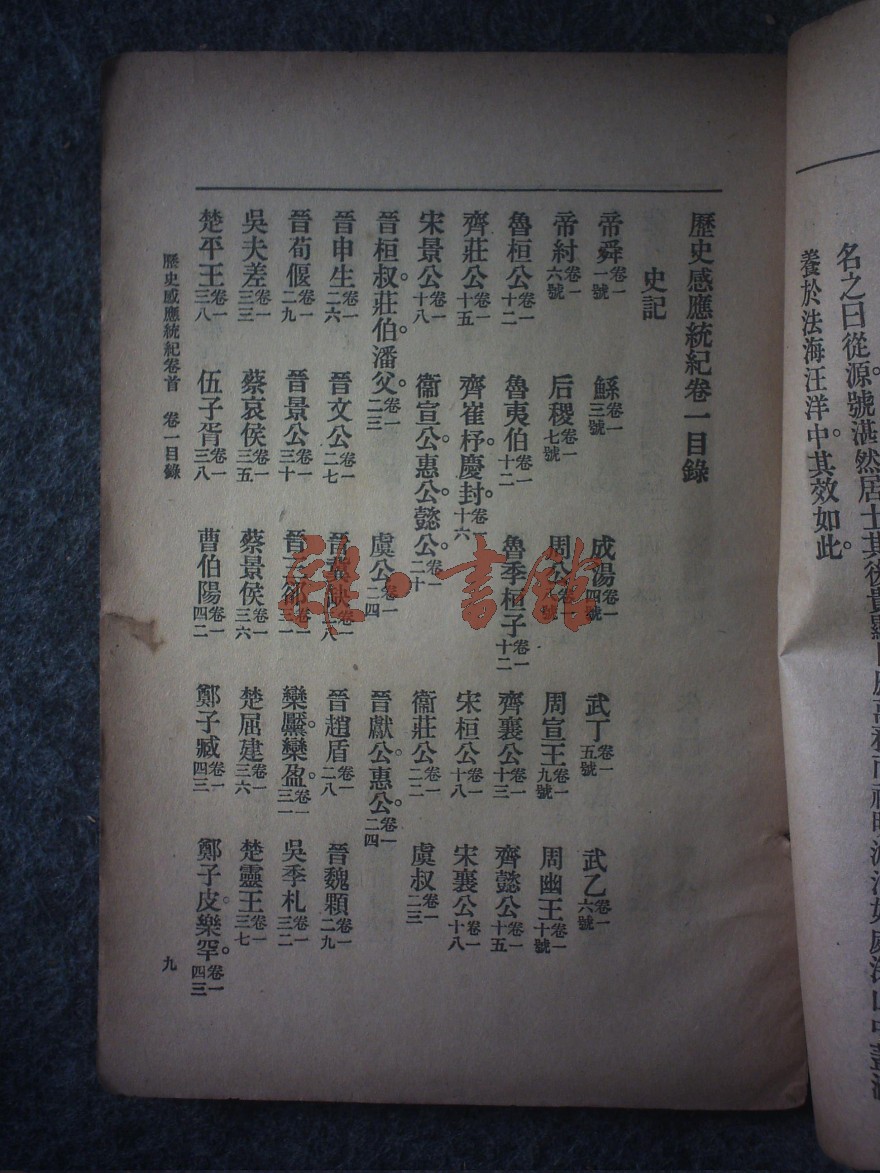 名之曰從源。號湛然居士其後貴顯
養於法海汪洋中。其效如此。
歷史感應統紀卷一目錄
史記
帝舜卷一一號 鯀卷一三號 成湯卷一四號 武丁卷一五號 武乙卷一六號
帝紂卷一六號 后稷卷一七號 周公卷一號 周宣王卷一九號 周幽王卷一十號
魯桓公卷一十二 魯夷伯卷一十二 魯季桓子卷一十二 齊襄公卷一十三 齊懿公卷一十五
齊莊公卷一十五 齊崔杼。慶封。卷一十六 宋桓公卷一十八 宋襄公卷一十八
宋景公卷一十八 衞宣公。惠公。懿公。卷一二十 衞莊公卷一二二 虞叔卷一二三
晉桓叔。莊伯。潘父。卷一二三 虞公卷一二四 晉獻公。惠公。卷一二四
晉申生卷一二六 晉文公卷一二七 晉缺卷一二八 晉趙盾卷一二八 晉魏顆卷一二九
晉荀偃卷一二九 晉景公卷一三十 晉三郤卷一三一 欒黶。欒盈。卷一三一 吳季札卷一三二
吳夫差卷一三三 蔡哀侯卷一三五 蔡景侯卷一三六 楚屈建卷一三六 楚靈王卷一三七
楚平王卷一三八 伍子胥卷一三八 曹伯陽卷一四二 鄭子臧卷一四三 鄭子皮。樂罕。卷一四三
歷史感應統紀卷首 卷一目錄 九
雜·書館